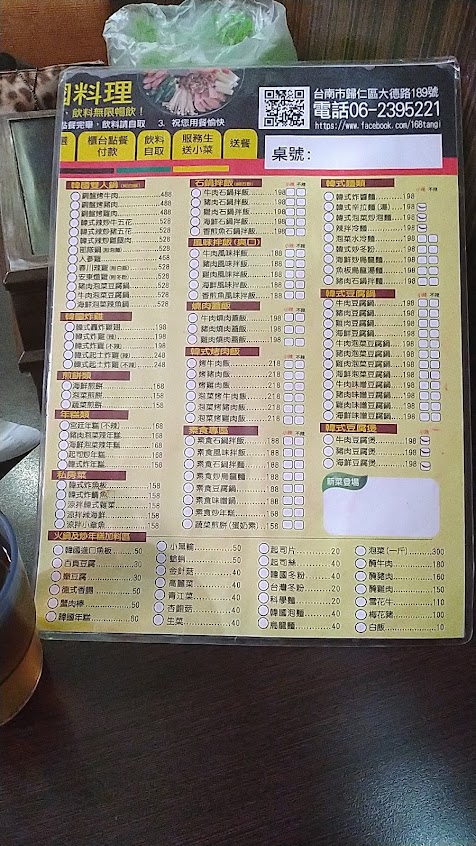 國料理
飲料無限暢飲！
點餐完畢，飲料請自取 3. 祝您用餐愉快
台南市歸仁區大德路189號
電話06-2395221
https://www.facebook.com/168tangi
櫃台點餐 付款
飲料 自取
服務生 送小菜
送餐
桌號：
韓國雙人鍋
銅盤烤牛肉 488
銅盤烤豬肉 488
銅盤烤雞肉 488
韓式辣炒牛五花 528
韓式辣炒豬五花 528
韓式辣炒雞腿肉 528
部隊鍋 528
人蔘雞 468
春川辣雞 528
安東燉雞 528
豬肉泡菜豆腐鍋 528
牛肉泡菜豆腐鍋 528
海鮮泡菜辣魚鍋 528
韓國炸雞
韓式轟炸雞翅 198
韓式炸雞(辣) 198
韓式炸雞(不辣) 198
韓式起士炸雞(辣) 248
韓式起士炸雞(不辣) 248
煎餅類
海鮮煎餅 168
泡菜煎餅 158
蔬菜煎餅 158
年糕類
宮廷年糕(不辣) 168
豬肉泡菜辣年糕 168
海鮮泡菜辣年糕 168
起司炒年糕 168
韓式炒年糕 158
私房菜
韓式炸魚板 158
韓式炸鯖魚 158
涼拌韓式雞菜 158
涼拌辣海鮮 158
涼拌小章魚 158
石鍋拌飯
小辣 不辣
牛肉石鍋拌飯 198
豬肉石鍋拌飯 198
雞肉石鍋拌飯 198
海鮮石鍋拌飯 198
香煎魚石鍋拌飯 198
風味拌飯(爽口)
小辣 不辣
牛肉風味拌飯 188
豬肉風味拌飯 188
雞肉風味拌飯 188
海鮮風味拌飯 188
香煎魚風味拌飯 188
燒肉蓋飯
小辣 不辣
牛肉燒肉蓋飯 198
豬肉燒肉蓋飯 198
雞肉燒肉蓋飯 198
韓式烤肉飯
小辣 不辣
烤牛肉飯 218
烤豬肉飯 218
烤雞肉飯 218
泡菜烤牛肉飯 218
泡菜烤豬肉飯 218
泡菜烤雞肉飯 218
素食專區
小辣 不辣
素食石鍋拌飯 198
素食風味拌飯 198
素食石鍋拌麵 198
素食炒烏龍麵 198
素食豆腐鍋 198
素食味噌鍋 198
素食炒年糕 158
蔬菜煎餅(蛋奶素) 158
韓式麵類
小辣 不辣
韓式炸醬麵 198
韓式辛拉麵(湯) 198
韓式泡菜炒泡麵 198
辣拌冷麵 198
泡菜水冷麵 198
韓式炒冬粉 198
海鮮炒烏龍麵 198
魚板烏龍湯麵 198
豬肉石鍋拌麵 198
韓式豆腐鍋
小辣 不辣
牛肉豆腐鍋 198
豬肉豆腐鍋 198
雞肉豆腐鍋 198
海鮮豆腐鍋 198
牛肉泡菜豆腐鍋 198
豬肉泡菜豆腐鍋 198
雞肉泡菜豆腐鍋 198
海鮮泡菜豆腐鍋 198
牛肉味噌豆腐鍋 198
豬肉味噌豆腐鍋 198
雞肉味噌豆腐鍋 198
海鮮味噌豆腐鍋 198
韓式豆腐煲
小辣
牛肉豆腐煲 198
豬肉豆腐煲 198
海鮮豆腐煲 198
新菜登場
火鍋及炒年糕加料區
韓國進口魚板 50
百頁豆腐 30
嫩豆腐 30
德式香腸 50
蟹肉棒 50
韓國年糕 60
小熱鍋 50
蛤蜊 50
金針菇 40
高麗菜 40
青江菜 40
杏鮑菇 40
生菜 40
起司片 20
起司絲 40
韓國冬粉 40
台灣冬粉 20
科學麵 20
韓國泡麵 40
烏龍麵 20
泡菜(一斤) 300
醃牛肉 180
醃豬肉 160
醃雞肉 150
雪花牛 110
梅花豬 100
白飯 10